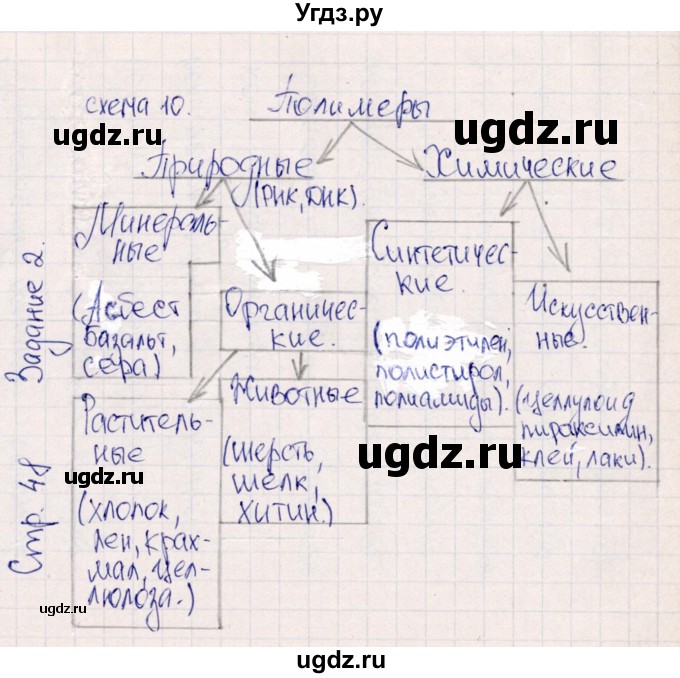 Угдз.ру
схема 10.
Полимеры
ugdz.ru
ugdz.ru
Природные
Химические
(РНК, ДНК).
Минераль-
ные
(Асбест
базальт,
сера)
Органичес-
кие.
Синтетичес-
кие.
(полиэтилен,
полистирол,
полиамиды).
Искусствен-
ные.
(целлулоид
пираксилин,
клей, лаки).
Раститель-
ные
(хлопок,
лен, крах-
мал, цел-
люлоза.)
Животные
(шерсть,
шёлк,
хитин.)
Задание 2.
Стр. 48
ugdz.ru
ugdz.ru
ugdz.ru
ugdz.ru
ugdz.ru
ugdz.ru